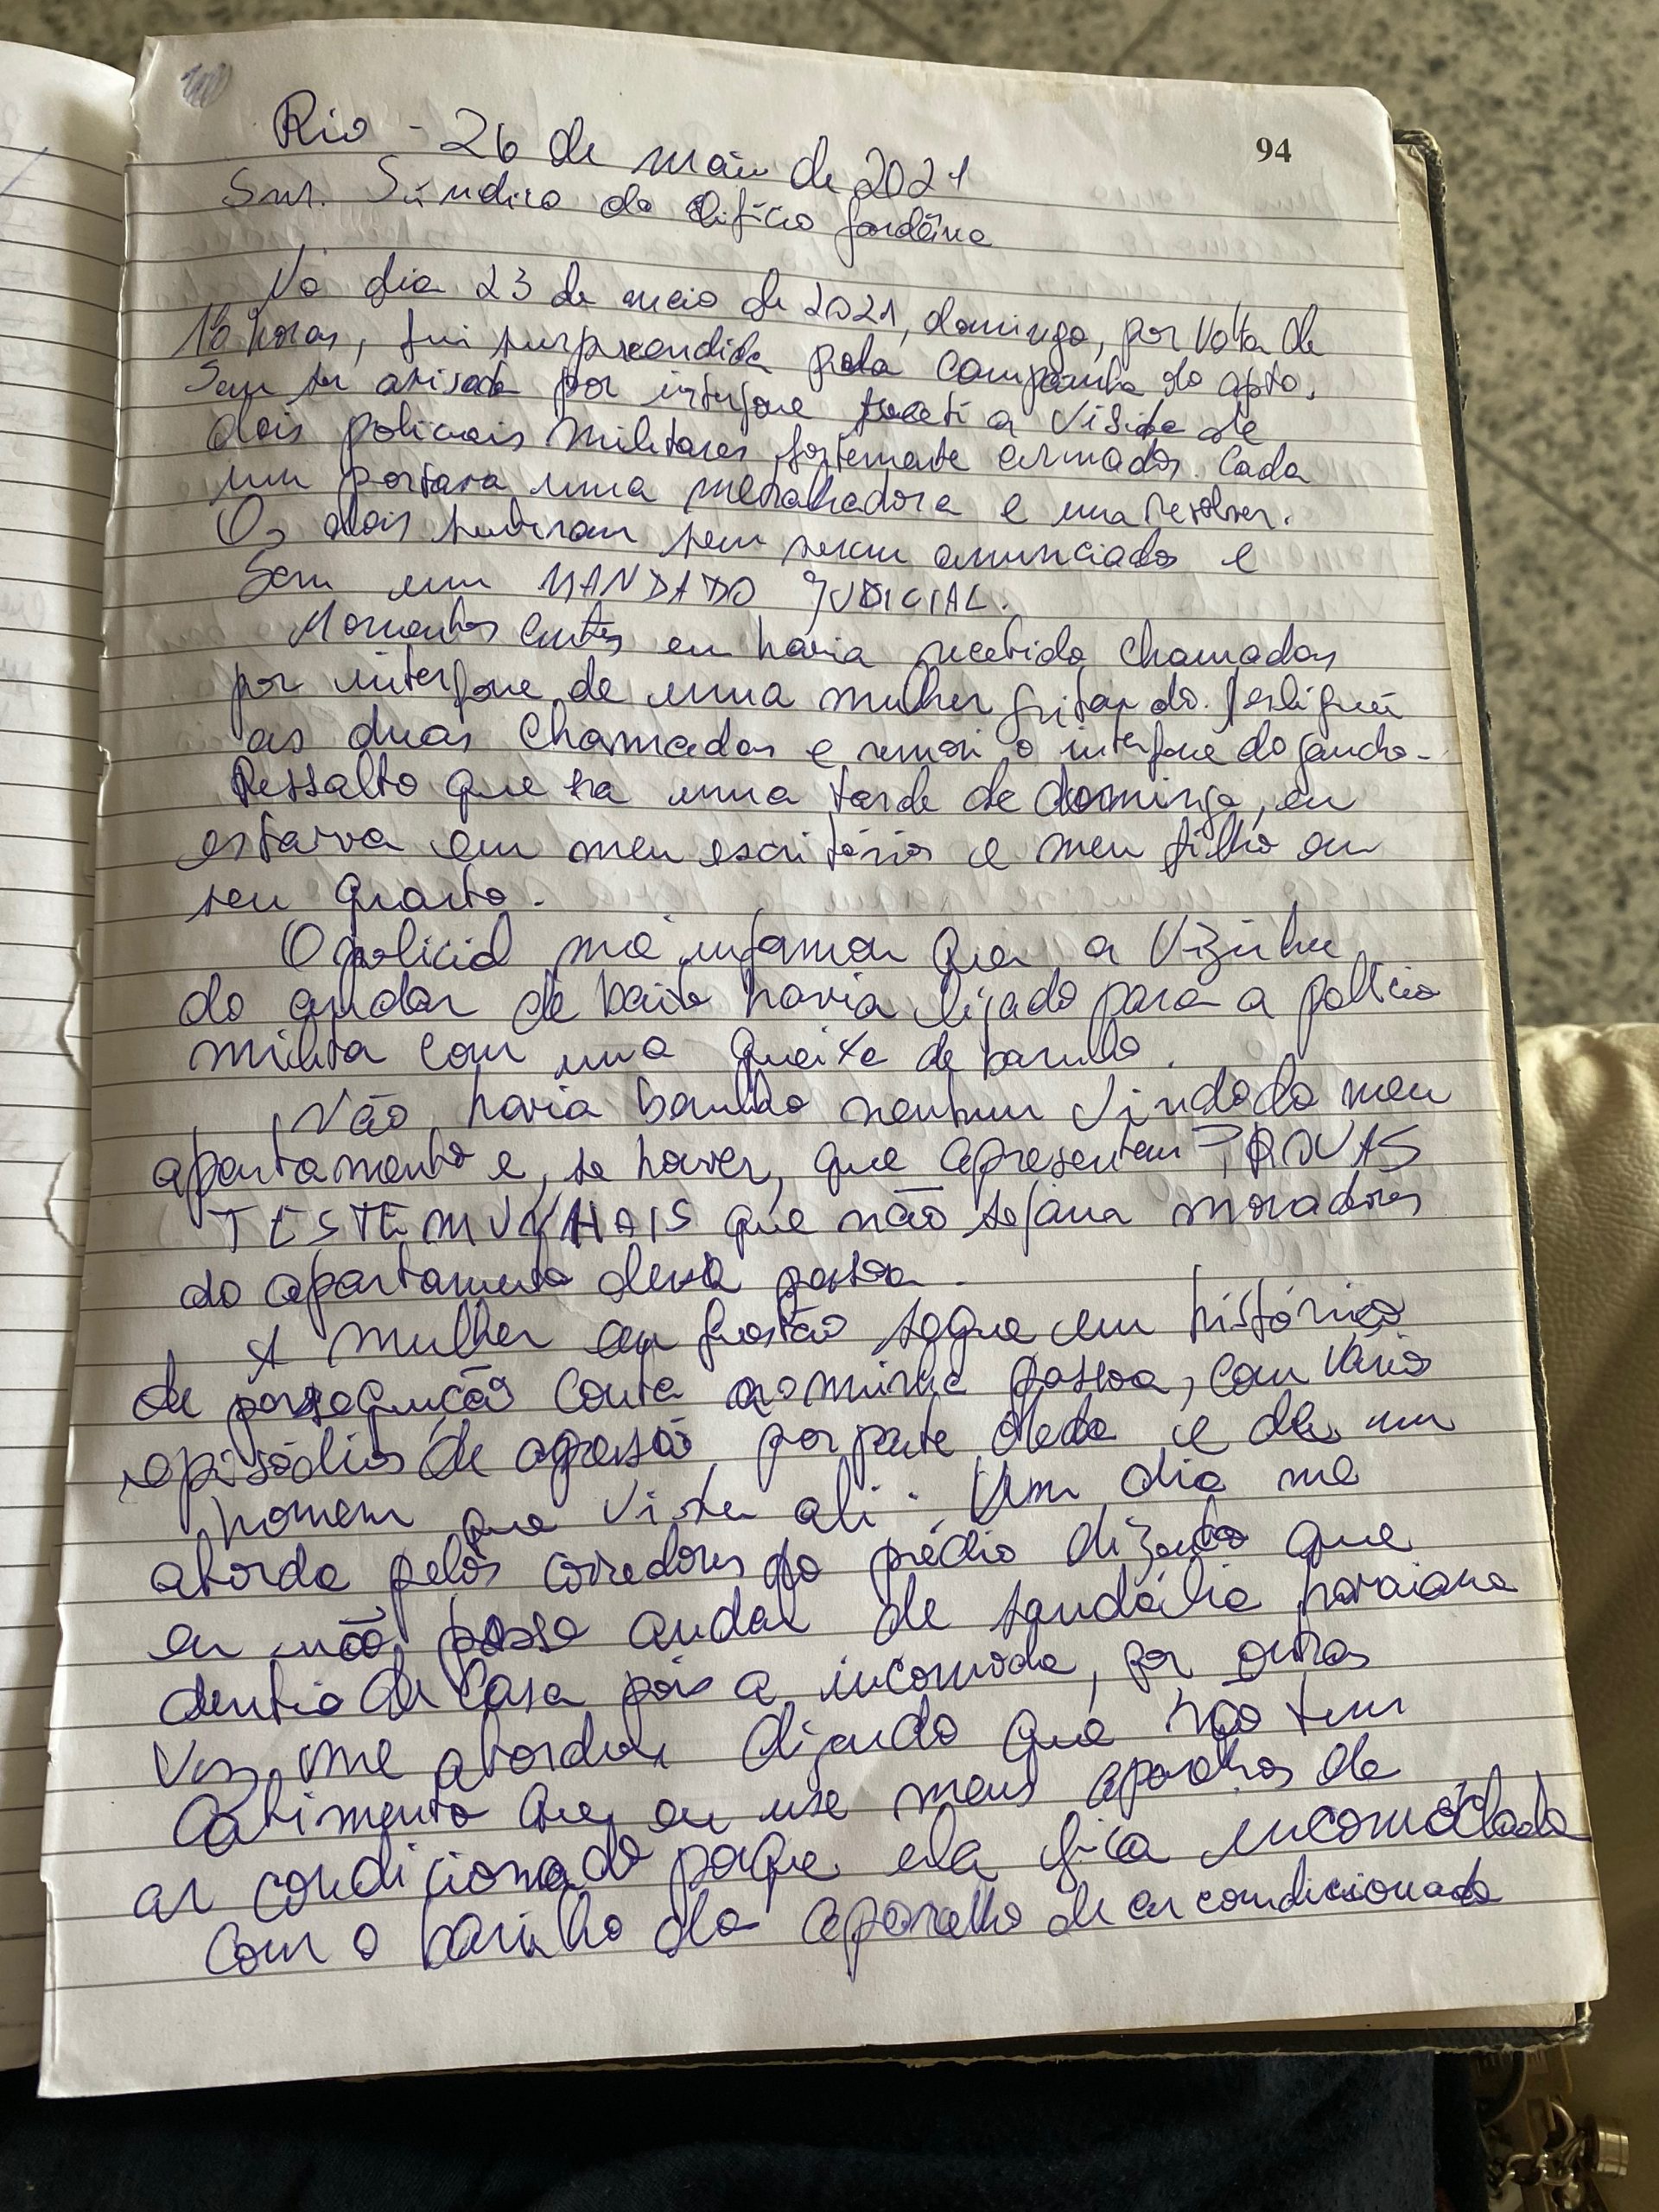 94
Rio - 26 de maio de 2021
Snr. Síndico do Edifício Gardênia
No dia 23 de maio de 2021, domingo, por volta de
16 horas, fui surpreendida pela campainha do apto.
Sem ser avisada por interfone recebi a visita de
dois policiais militares fortemente armados. Cada
um portava uma metralhadora e um revolver.
Os dois subiram sem serem anunciados e
Sem um MANDADO JUDICIAL.
Momentos antes eu havia recebido chamadas
por interfone de uma mulher gritando. Desliguei
as duas chamadas e removi o interfone do gancho.
Ressalto que era uma tarde de domingo, eu
estava em meu escritório e meu filho em
seu quarto.
O policial me informou que a vizinha
do andar de baixo havia ligado para a polícia
milita com uma queixa de barulho.
Não havia barulho nenhum vindo do meu
apartamento e, se houver, que apresentem PROVAS
TESTEMUNHAIS que não sejam moradores
do apartamento dessa pessoa.
A mulher em questão segue em histórico
de perseguição conta a minha pessoa, com vários
episódios de agressão por parte dela e de um
homem que vista ali. Um dia me
aborda pelos corredores do prédio dizendo que
eu não posso andar de sandália havaiana
dentro de casa pois a incomoda, por outras
vez me abordou dizendo que não tem
cabimento que eu use meus aparelhos de
ar condicionado porque ela fica incomodada
com o barulho do aparelho de ar condicionado